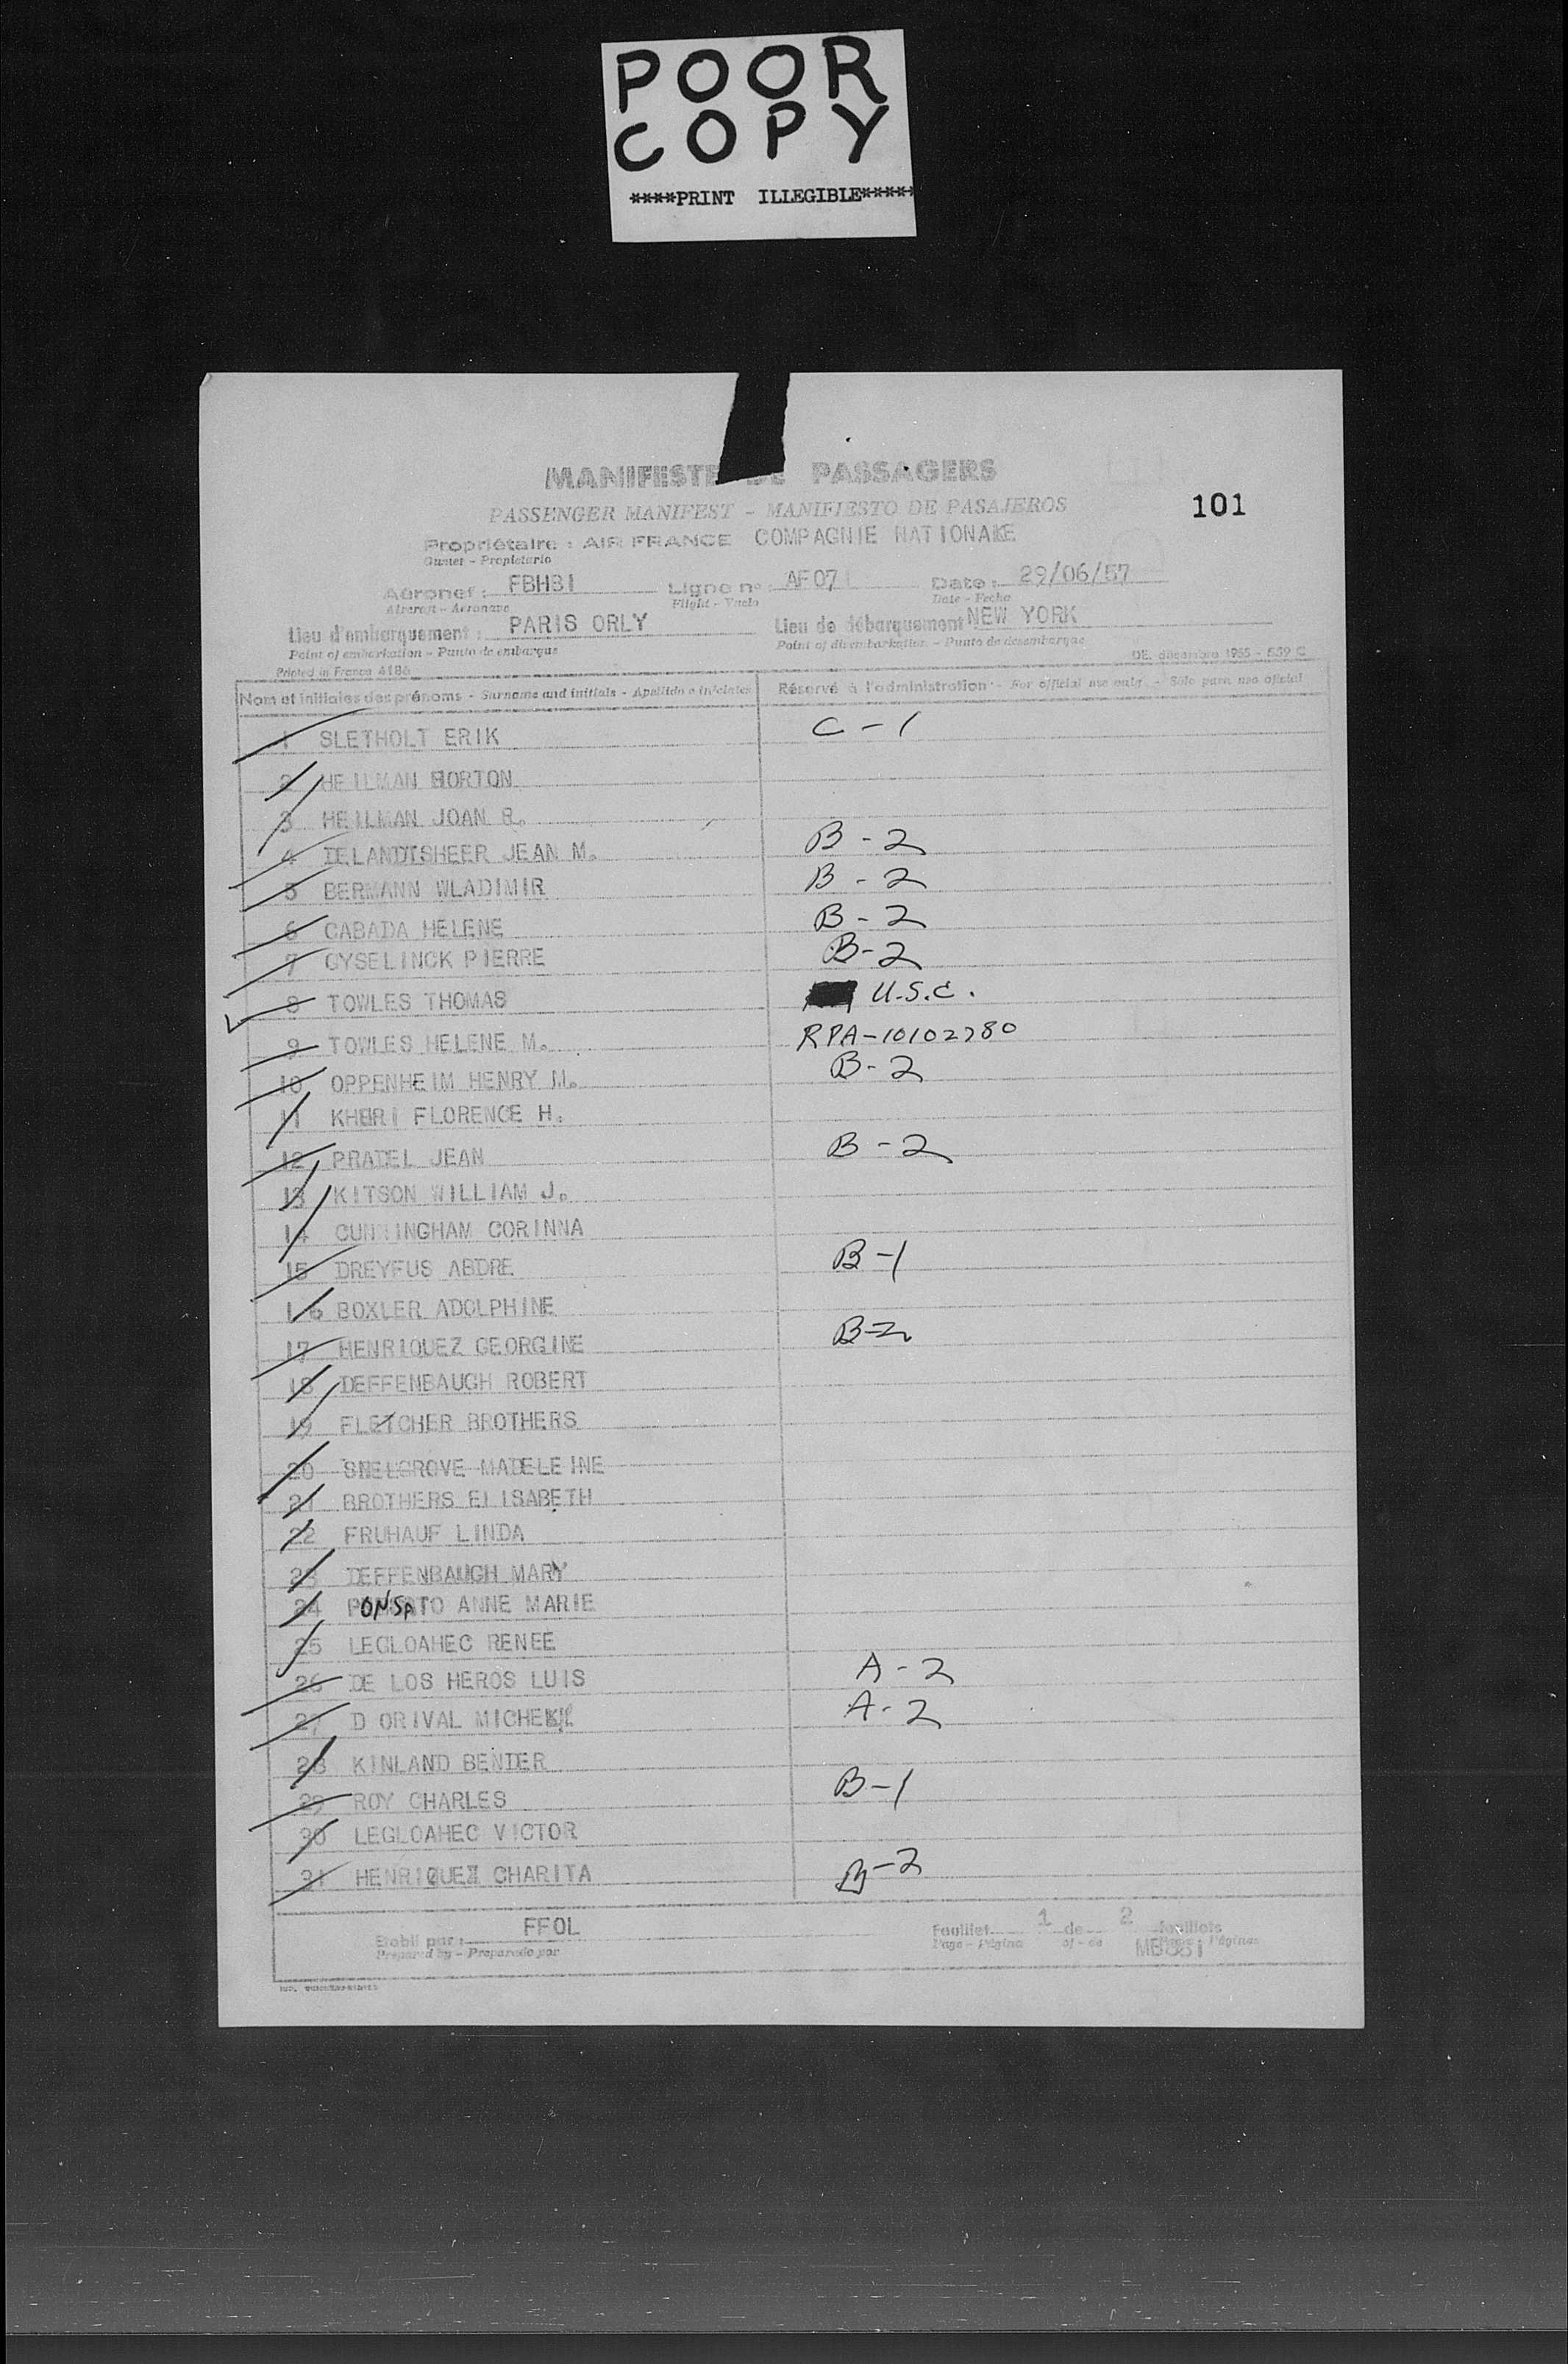 POOR
COPY
****PRINT ILLEGIBLE*****
MANIFESTE DE PASSAGERS
PASSENGER MANIFEST - MANIFIESTO DE PASAJEROS
101
Propriétaire : AIR FRANCE COMPAGNIE NATIONALE
Owner - Propietario
Aéronef : FBHBI Ligne n° : AF07 Date : 29/06/57
Aircraft - Aeronave Flight - Vuelo Date - Fecha
Lieu d'embarquement : PARIS ORLY Lieu de débarquement NEW YORK
Point of embarkation - Punto de embarque Point of disembarkation - Punto de desembarque
Printed in France 4186 OE. décembre 1955 - 539 C
Nom et initiales des prénoms - Surname and initials - Apellido e iniciales Réservé à l'administration - For official use only - Sólo para uso oficial
1 SLETHOLT ERIK C-1
2 HEILMAN MORTON
3 HEILMAN JOAN R.
4 DELANDTSHEER JEAN M. B-2
5 BERMANN WLADIMIR B-2
6 CABADA HELENE B-2
7 GYSELINCK PIERRE B-2
8 TOWLES THOMAS U.S.C.
9 TOWLES HELENE M. RPA-10102780
10 OPPENHEIM HENRY M. B-2
11 FLORENCE H.
12 PRADEL JEAN B-2
13 KITSON WILLIAM J.
14 CUNNINGHAM CORINNA
15 DREYFUS ABDRE B-1
16 BOXLER ADOLPHINE
17 HENRIQUEZ GEORGINE B-2
18 DEFFENBAUGH ROBERT
19 FLETCHER BROTHERS
20 SNELGROVE MADELEINE
21 BROTHERS ELISABETH
22 FRUHAUF LINDA
23 DEFFENBAUGH MARY
24 PONSATO ANNE MARIE
25 LEGLOAHEC RENEE
26 DE LOS HEROS LUIS A-2
27 D ORIVAL MICHEL A-2
28 KINLAND BENDER
29 ROY CHARLES B-1
30 LEGLOAHEC VICTOR
31 HENRIQUEZ CHARITA B-2
Etabli par : FFOL Feuillet 1 de 2 feuillets
Prepared by - Preparado por Page - Página of - de Páginas